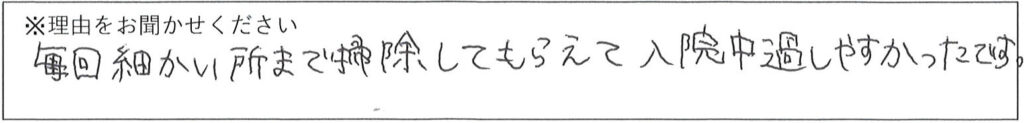 ※理由をお聞かせください
毎回細かい所まで掃除してもらえて入院中過しやすかったです。